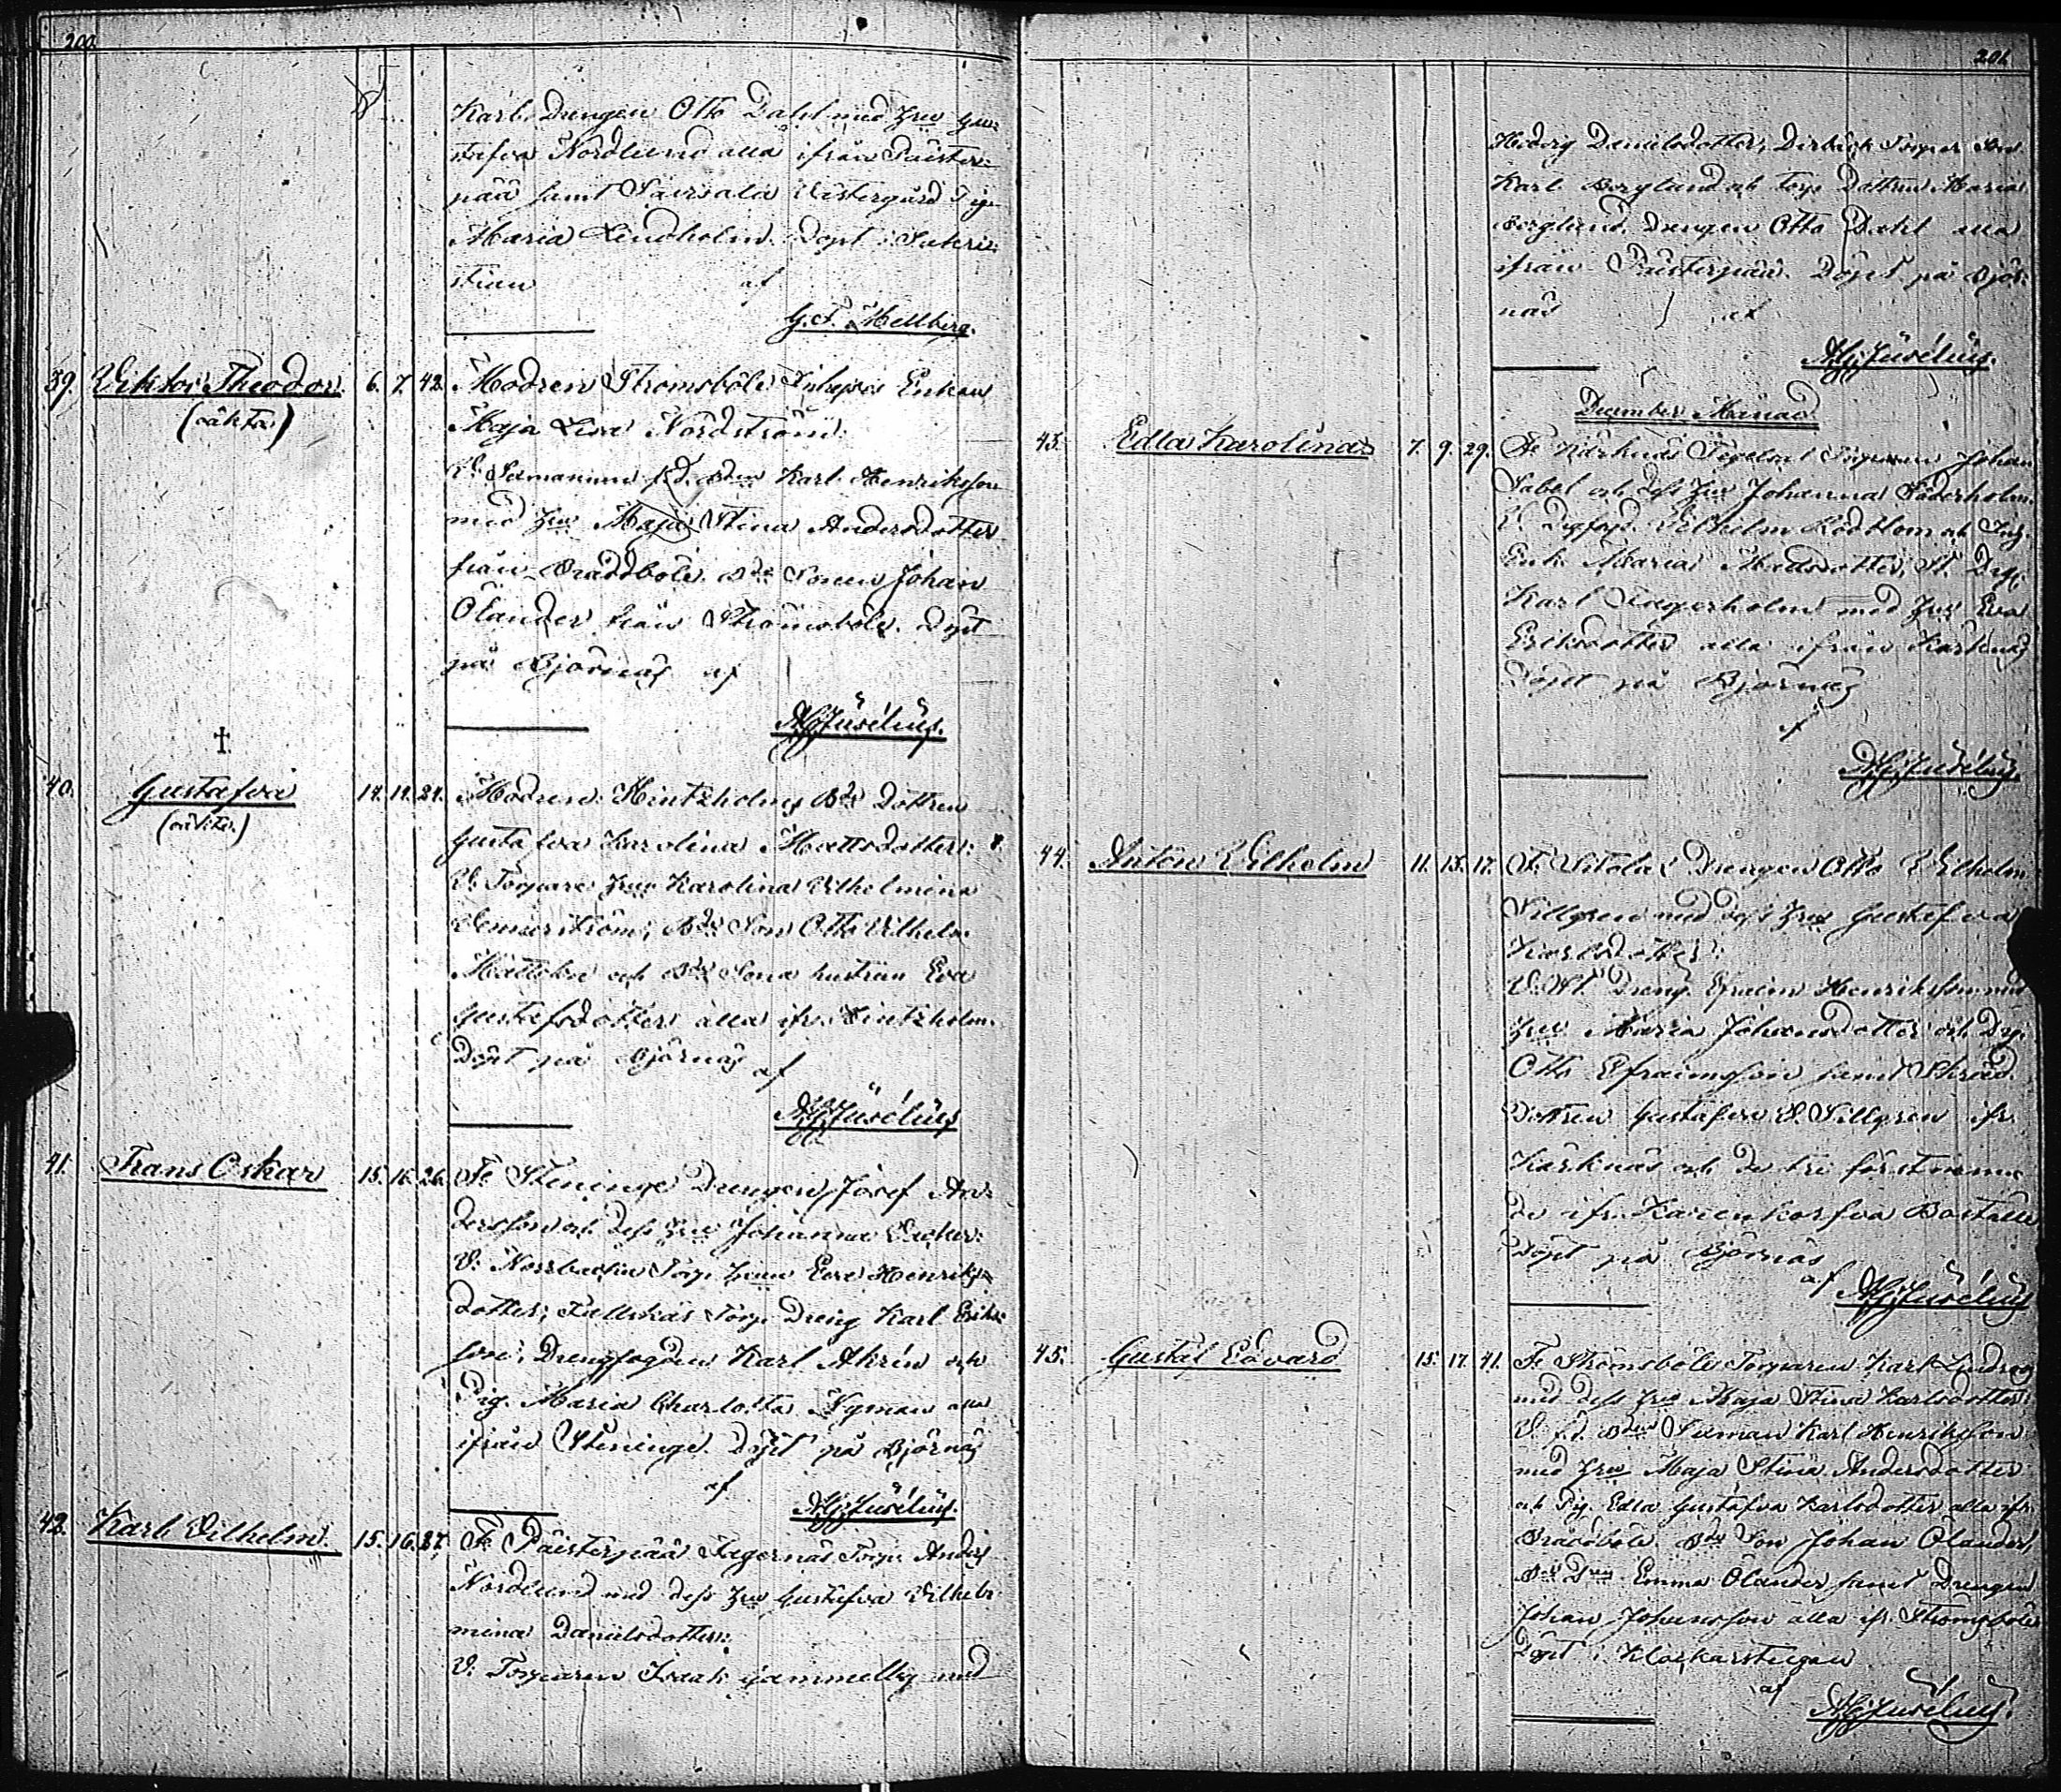 200
Karl. Drengen Otto Dahl med Hru Gus-
tafva Nordlund alla ifrån Päister-
pää samt Vestergård Pig.
Maria Lindholm. Döpt i Sakri-
stian af
G. F. Hellberg.
39. Viktor Theodor. 6. 7. 42. Modren Strömsböle Inhyses Enkan
(oäkta)
Maja Lisa Nordström.
V. f.d. Bden Karl Henriksson
med Hru Maja Stina Andersdotter
från Bräddböle. Bde Sonen Johan
Ölander från Strömsböle. Döpt
på Björnäs af
AGJusélius.
†
40. Gustafva 14. 14. 24. Modren Hintzholms Bde Dottren
(oäkta)
Gustafva Karolina Mattsdotter:
V. Torpare Hru Karolina Vilhelmina
Vennerström; Bde Son Otto Vilhelm
Mattsson och Bde Sona hustrun Eva
Gustafsdotter alla ifr. Hintzholm.
Döpt på Björnäs af
AGJusélius
41. Frans Oskar 15. 16. 26. Fr Steninge Drengen Josef An-
dersson och dess Hru Johanna
V. Norrbacka Torp. Hrun Eva Henriks-
dotter; Fallskär Torp. Dreng Karl Eriks-
son; Drengfogden Karl Ahrén och
Pig. Maria Charlotta Nyman alla
ifrån Steninge. Döpt på Björnäs
af
AGJusélius.
42. Karl Vilhelm. 15. 16. 27. Fr Päisterpää Fagernäs Torp. Anders
Nordlund med dess Hru Gustafva Vilhel-
mina Danielsdotter:
V. Torparen Isaak Gammelby med
201
Hedvig Danielsdotter; Torpar Son
Karl Berglund och Torp. Dottren Maria
Berglund. Drengen Otto Dahl alla
ifrån Päisterpää. Döpt på Björ-
näs af
AGJusélius.
December Månad
43. Edla Karolina 7. 9. 29. Fr Kärknäs Johan
Sabel och dess Hru Johanna Söderholm.
V. Dregfogd. Vilhelm och Inh.
Enk. Maria Matsdotter; St. Dreg.
Karl Fagerholm med Hru Eva
Eriksdotter alla ifrån Kärknäs
Döpt på Björnäs
af
AGJusélius.
44. Anton Vilhelm 11. 15. 17. Fr. Drengen Otto Vilhelm
Sillgren med dess Hru Gustafva
Karlsdotter:
V. St Dreng. Efraim Henriksson med
Hru Maria Johansdotter och Drg.
Otto Efraimsson samt Skräd.
Dottren Gustafva V. Sillgren ifr.
Kärknäs och De tre förstnämn-
de ifr. Karenkorfva Boställe
Döpt på Björnäs
af AGJusélius
45. Gustaf Edvard 15. 17. 41. Fr Strömsböle Torparen Karl Lindroos
med dess Hru Maja Stina Karlsdotter:
V. f.d. Bden Karl Henriksson
med Hru Maja Stina Andersdotter
och Pig. Edla Gustafva Karlsdotter alla ifr.
Bräddböle. Bde Son Johan Ölander,
Bde Emma Ölander samt Drengen
Johan Johansson alla ifr. Strömsböle
Döpt i Klockarstugan
af
AGJusélius.